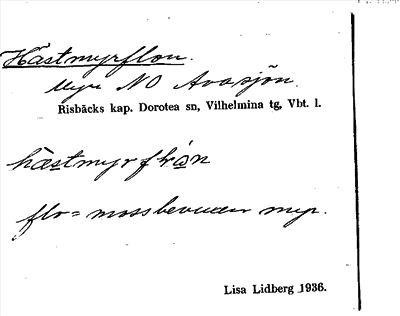 Hästmyrflon.
Myr NO Avasjön.
Risbäcks kap. Dorotea sn, Vilhelmina tg, Vbt. l.
hæstmyrflo̲n
flo = mossbevuxen myr.
Lisa Lidberg 1936.